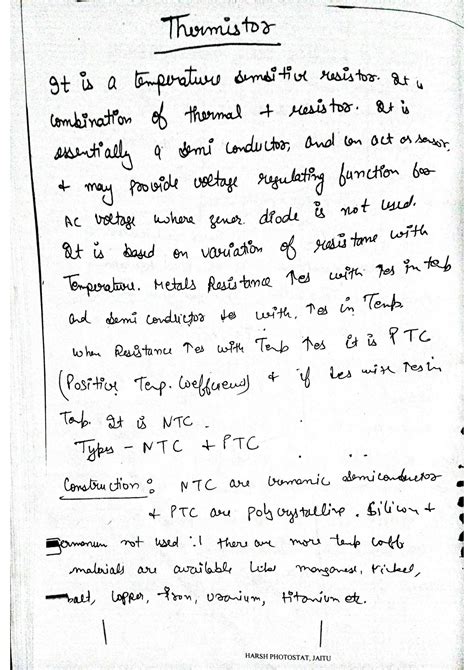 Thermistor
It is a temperature sensitive resistor. It is
combination of thermal + resistor. It is
essentially a semi conductor, and can act as sensor
+ may provide voltage regulating function for
AC voltage where zener diode is not used.
It is based on variation of resistance with
Temperature. Metals Resistance ↑es with ↑es in temp
and semi conductor ↓es with ↑es in Temp
when Resistance ↑es with Temp ↑es it is PTC
(Positive Temp. Coefficient) & if ↓es with ↑es in
Temp. It is NTC.
Types - NTC + PTC
Construction : NTC are ceramic semiconductor
+ PTC are Poly crystalline. Silicon +
germanium not used ∵ there are more temp coeff
materials are available like manganese, Nickel,
balt, Copper, Iron, Uranium, titanium etc.
HARSH PHOTOSTAT, JAITU